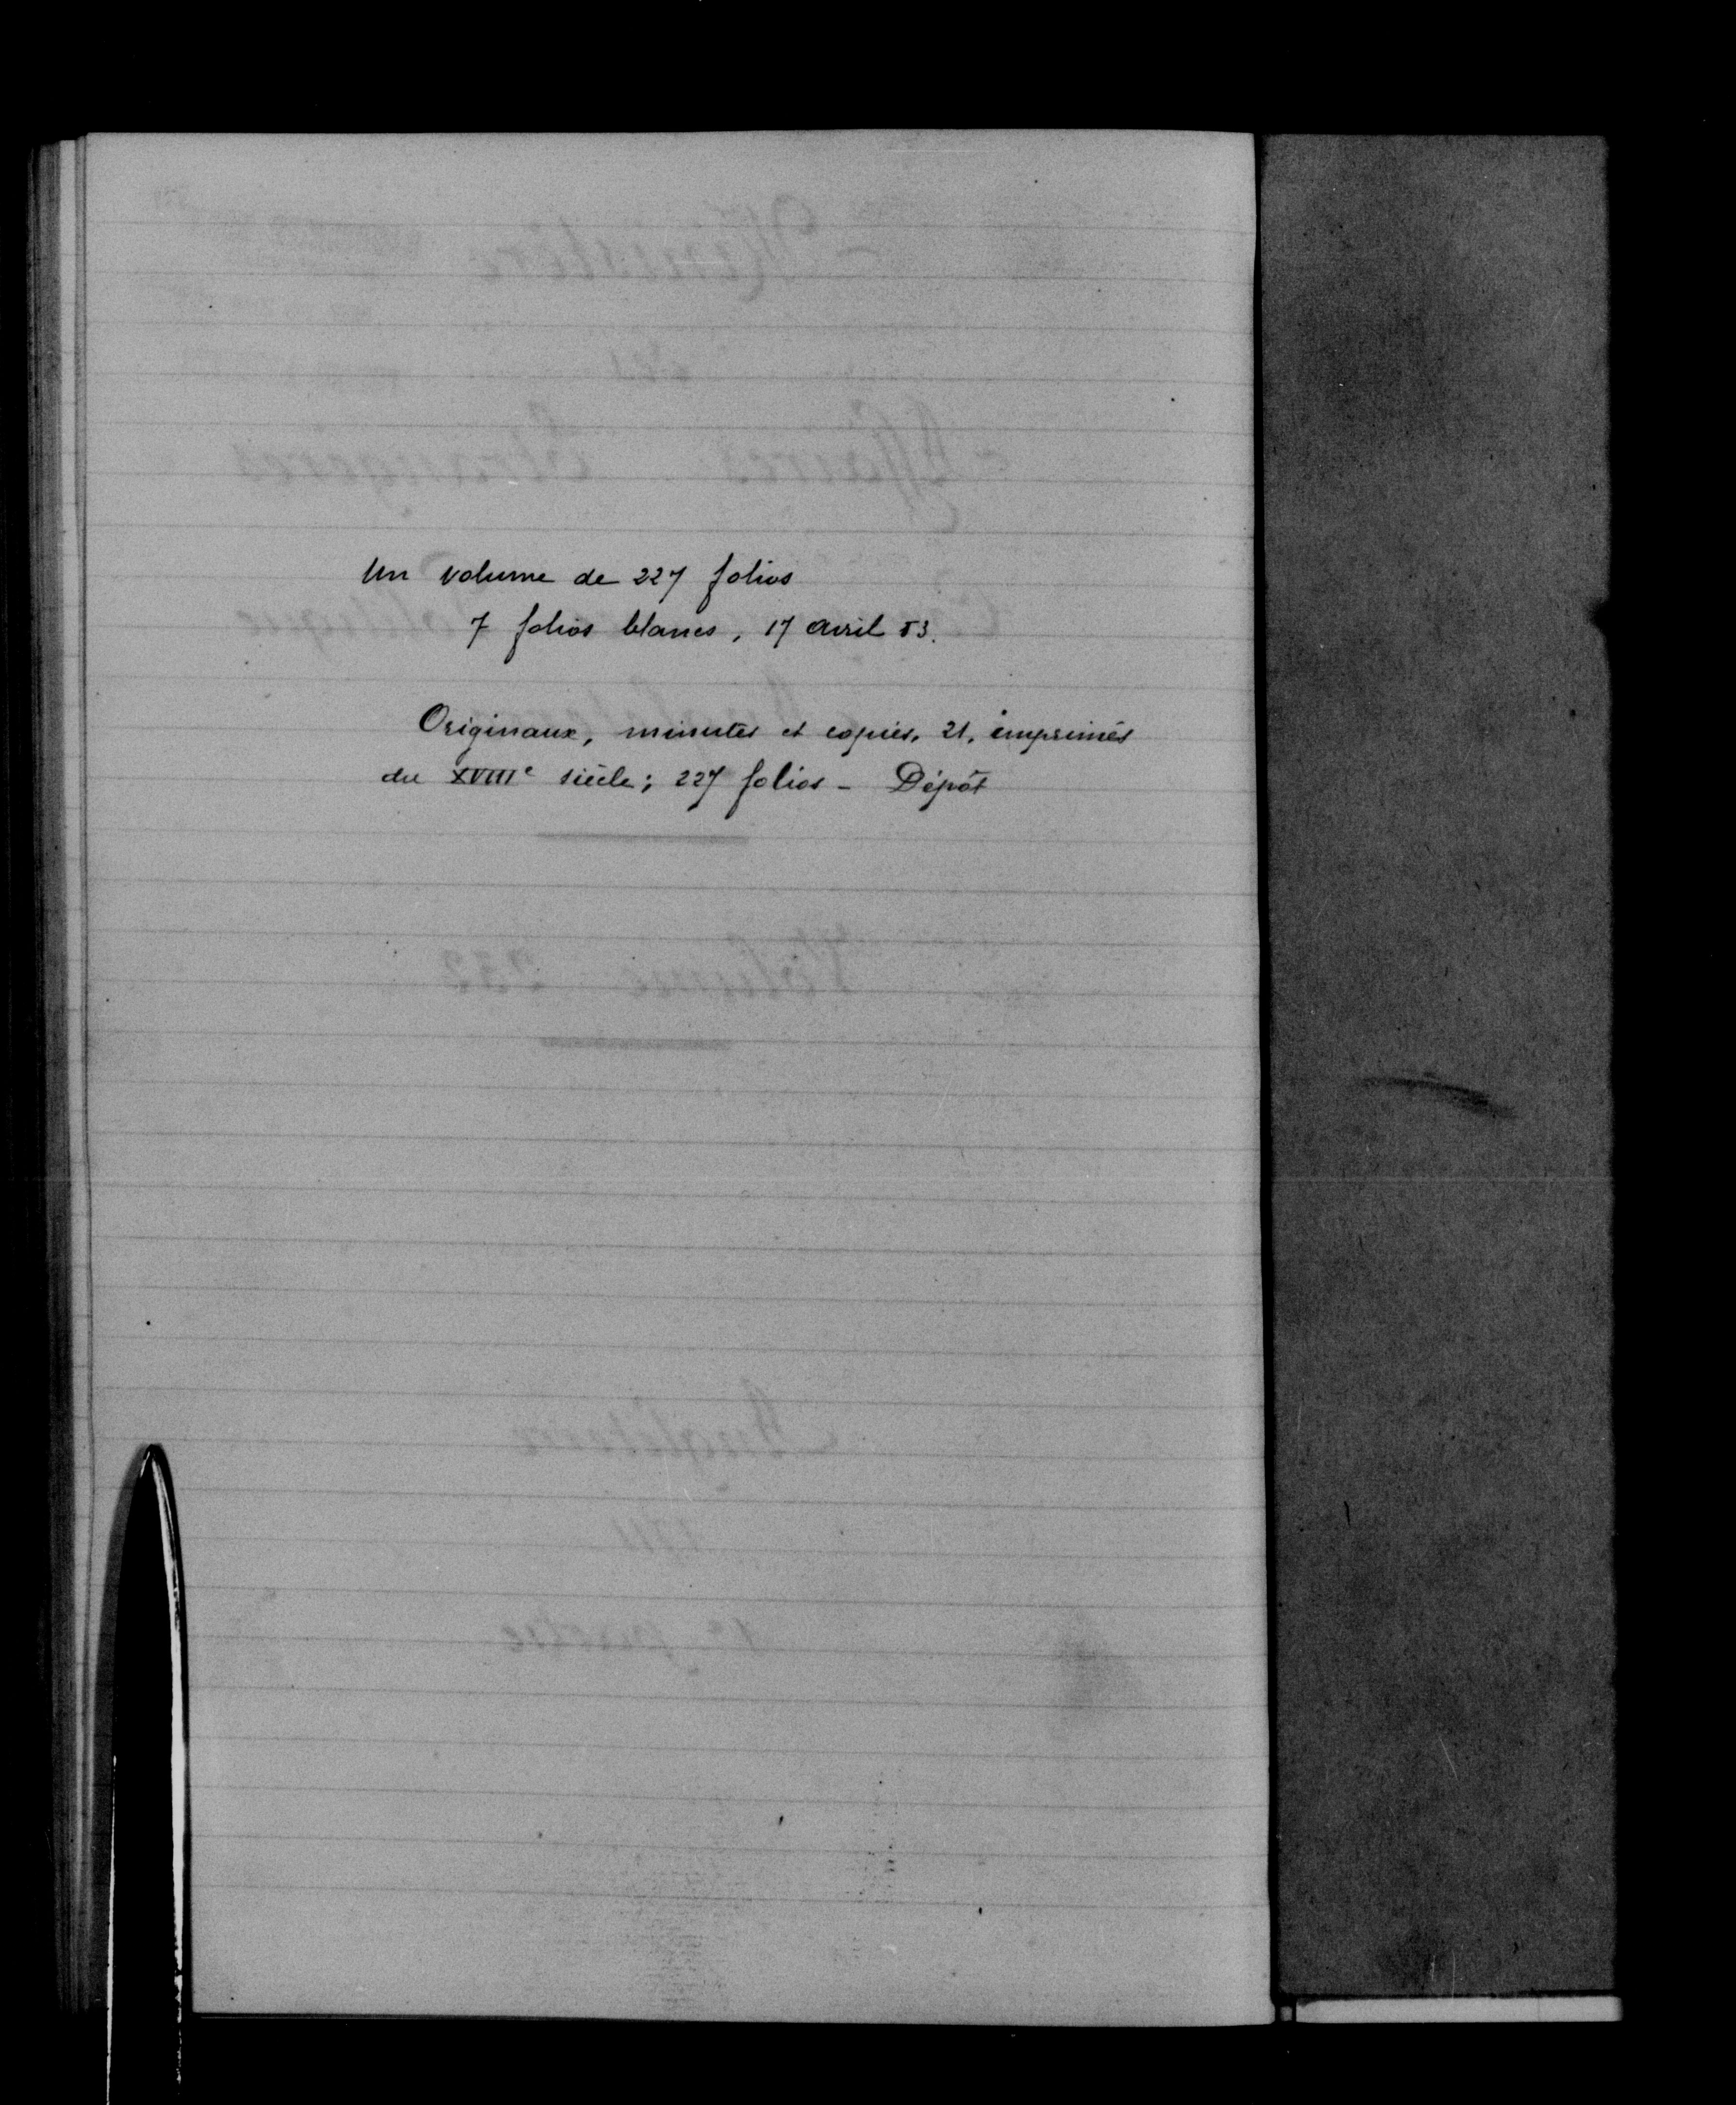 Un volume de 227 folios
7 folios blancs, 17 avril 53.
Originaux, minutes et copies. 21, imprimés
du XVIIIe siècle; 227 folios - Dépôt